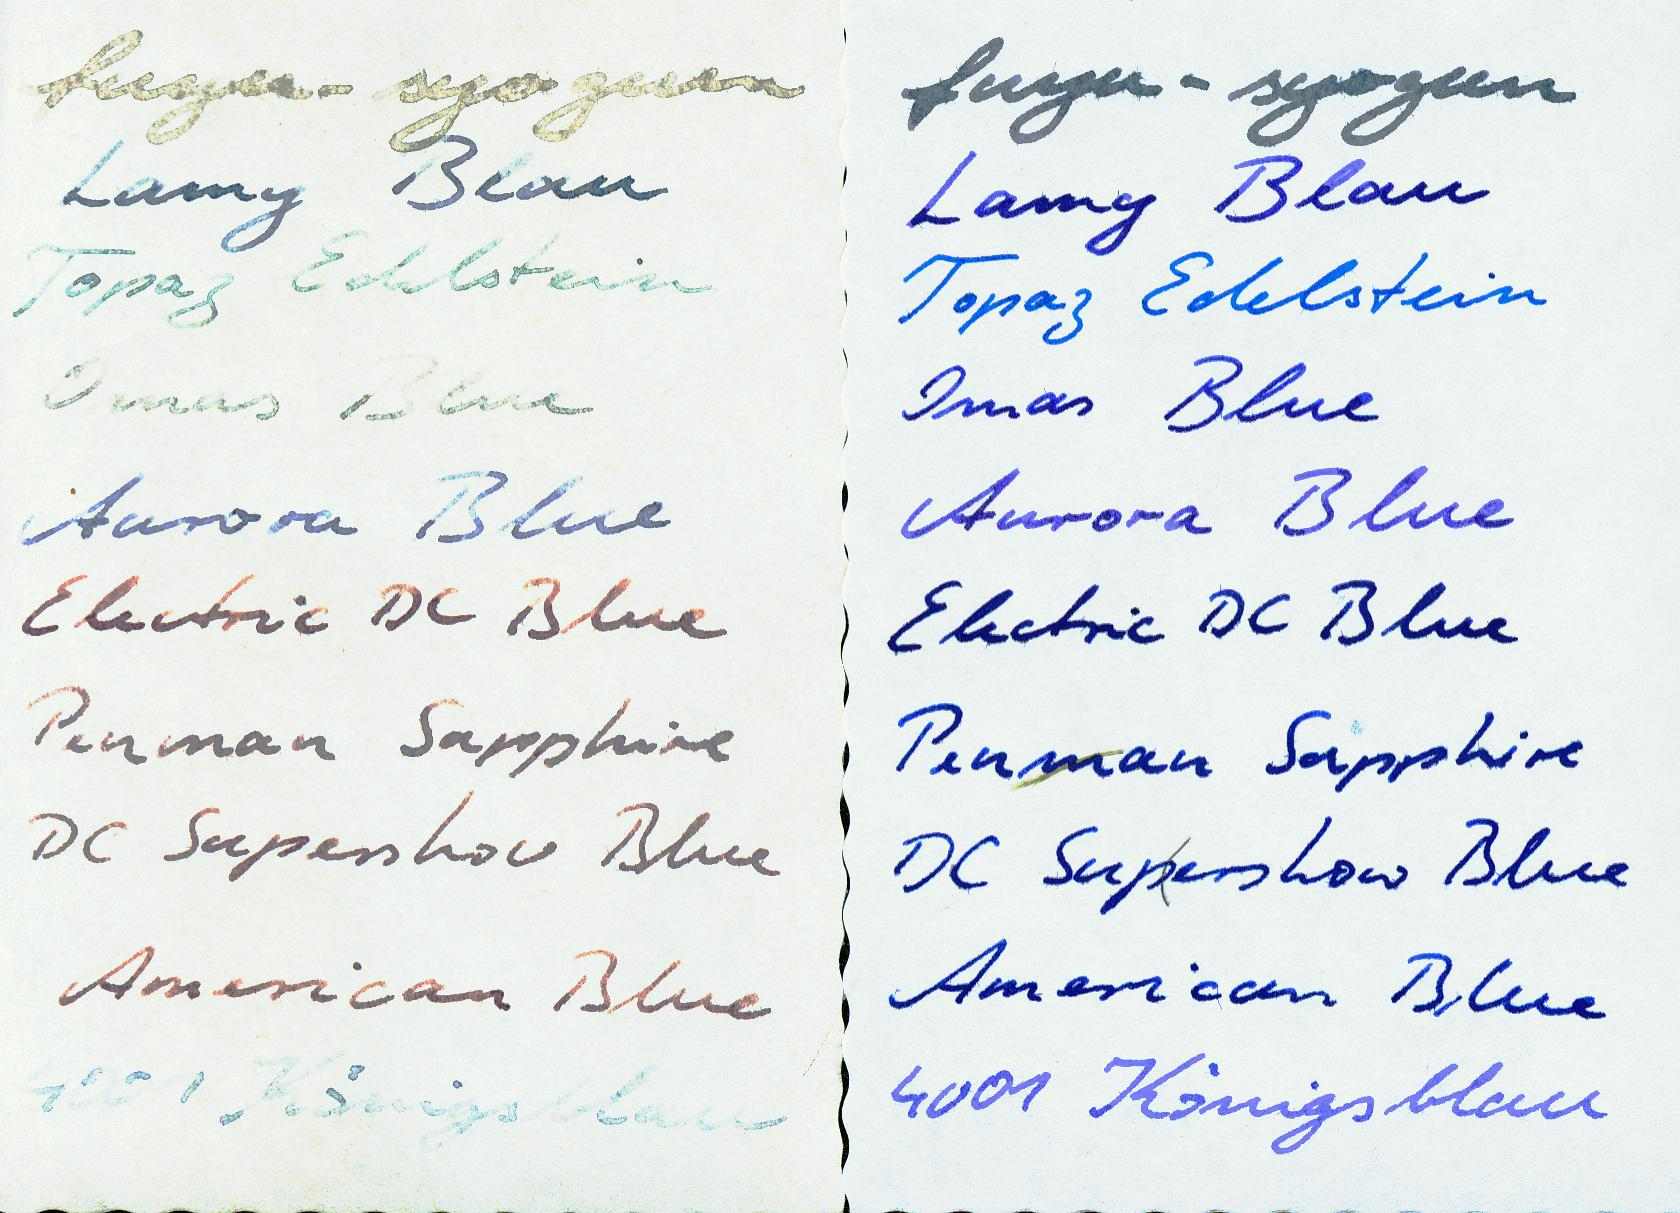 fuyu-syogun
Lamy Blau
Topaz Edelstein
Omas Blue
Aurora Blue
Electric DC Blue
Penman Sapphire
DC Supershow Blue
American Blue
4001 Königsblau
fuyu-syogun
Lamy Blau
Topaz Edelstein
Omas Blue
Aurora Blue
Electric DC Blue
Penman Sapphire
DC Supershow Blue
American Blue
4001 Königsblau